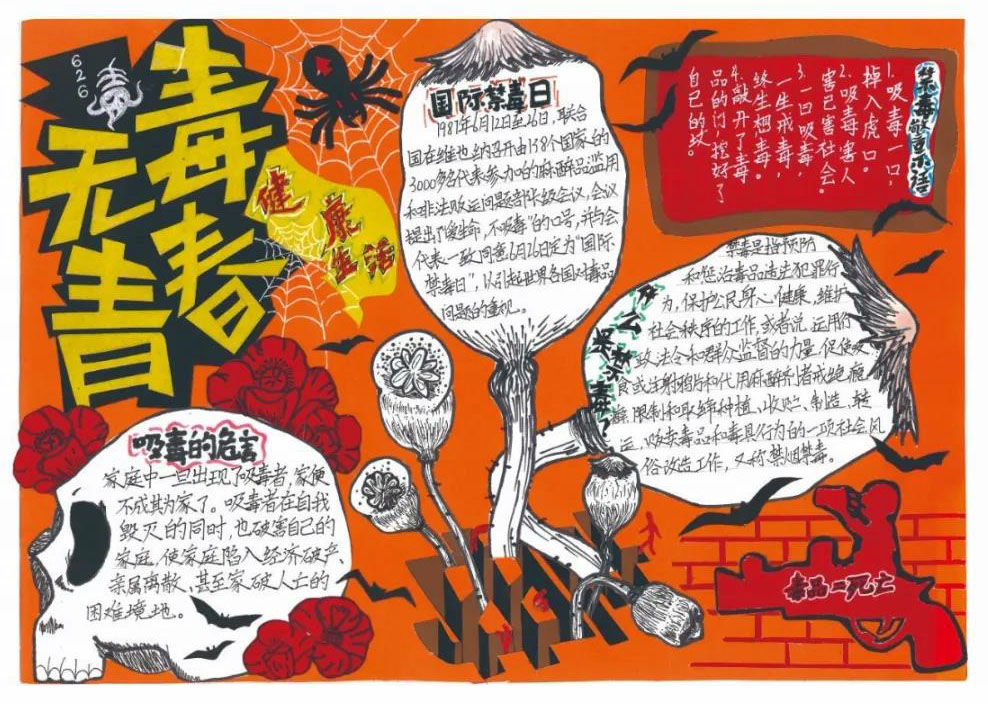 626
毒
无毒青春
健康生活
国际禁毒日
1987年6月12日至26日,联合
国在维也纳召开由138个国家的
3000多名代表参加的麻醉品滥用
和非法贩运问题部长级会议,会议
提出了"爱生命,不吸毒"的口号,并与会
代表一致同意6月26日定为"国际
禁毒日",以引起世界各国对毒品
问题的重视。
禁毒警示语
1.吸毒一口,
掉入虎口。
2.吸毒害人
害己害社会
3.一日吸毒
一生戒毒,
终生想毒。
4.敲开了毒
品的门,挖好了
自己的坟。
什么是禁毒?
禁毒是指预防
和惩治毒品违法犯罪行
为,保护公民身心健康,维护
社会秩序的工作,或者说,运用行
政法令和群众监督的力量,促使吸
食或注射鸦片和代用麻醉剂者戒绝瘾
毒,限制和取缔种植、收贮、制造、转
运、贩卖毒品和毒具行为的一项社会风
俗改造工作,又称禁烟禁毒。
吸毒的危害
家庭中一旦出现了吸毒者,家便
不成其为家了。吸毒者在自我
毁灭的同时,也破害自己的
家庭,使家庭陷入经济破产、
亲属离散、甚至家破人亡的
困难境地。
毒品=死亡